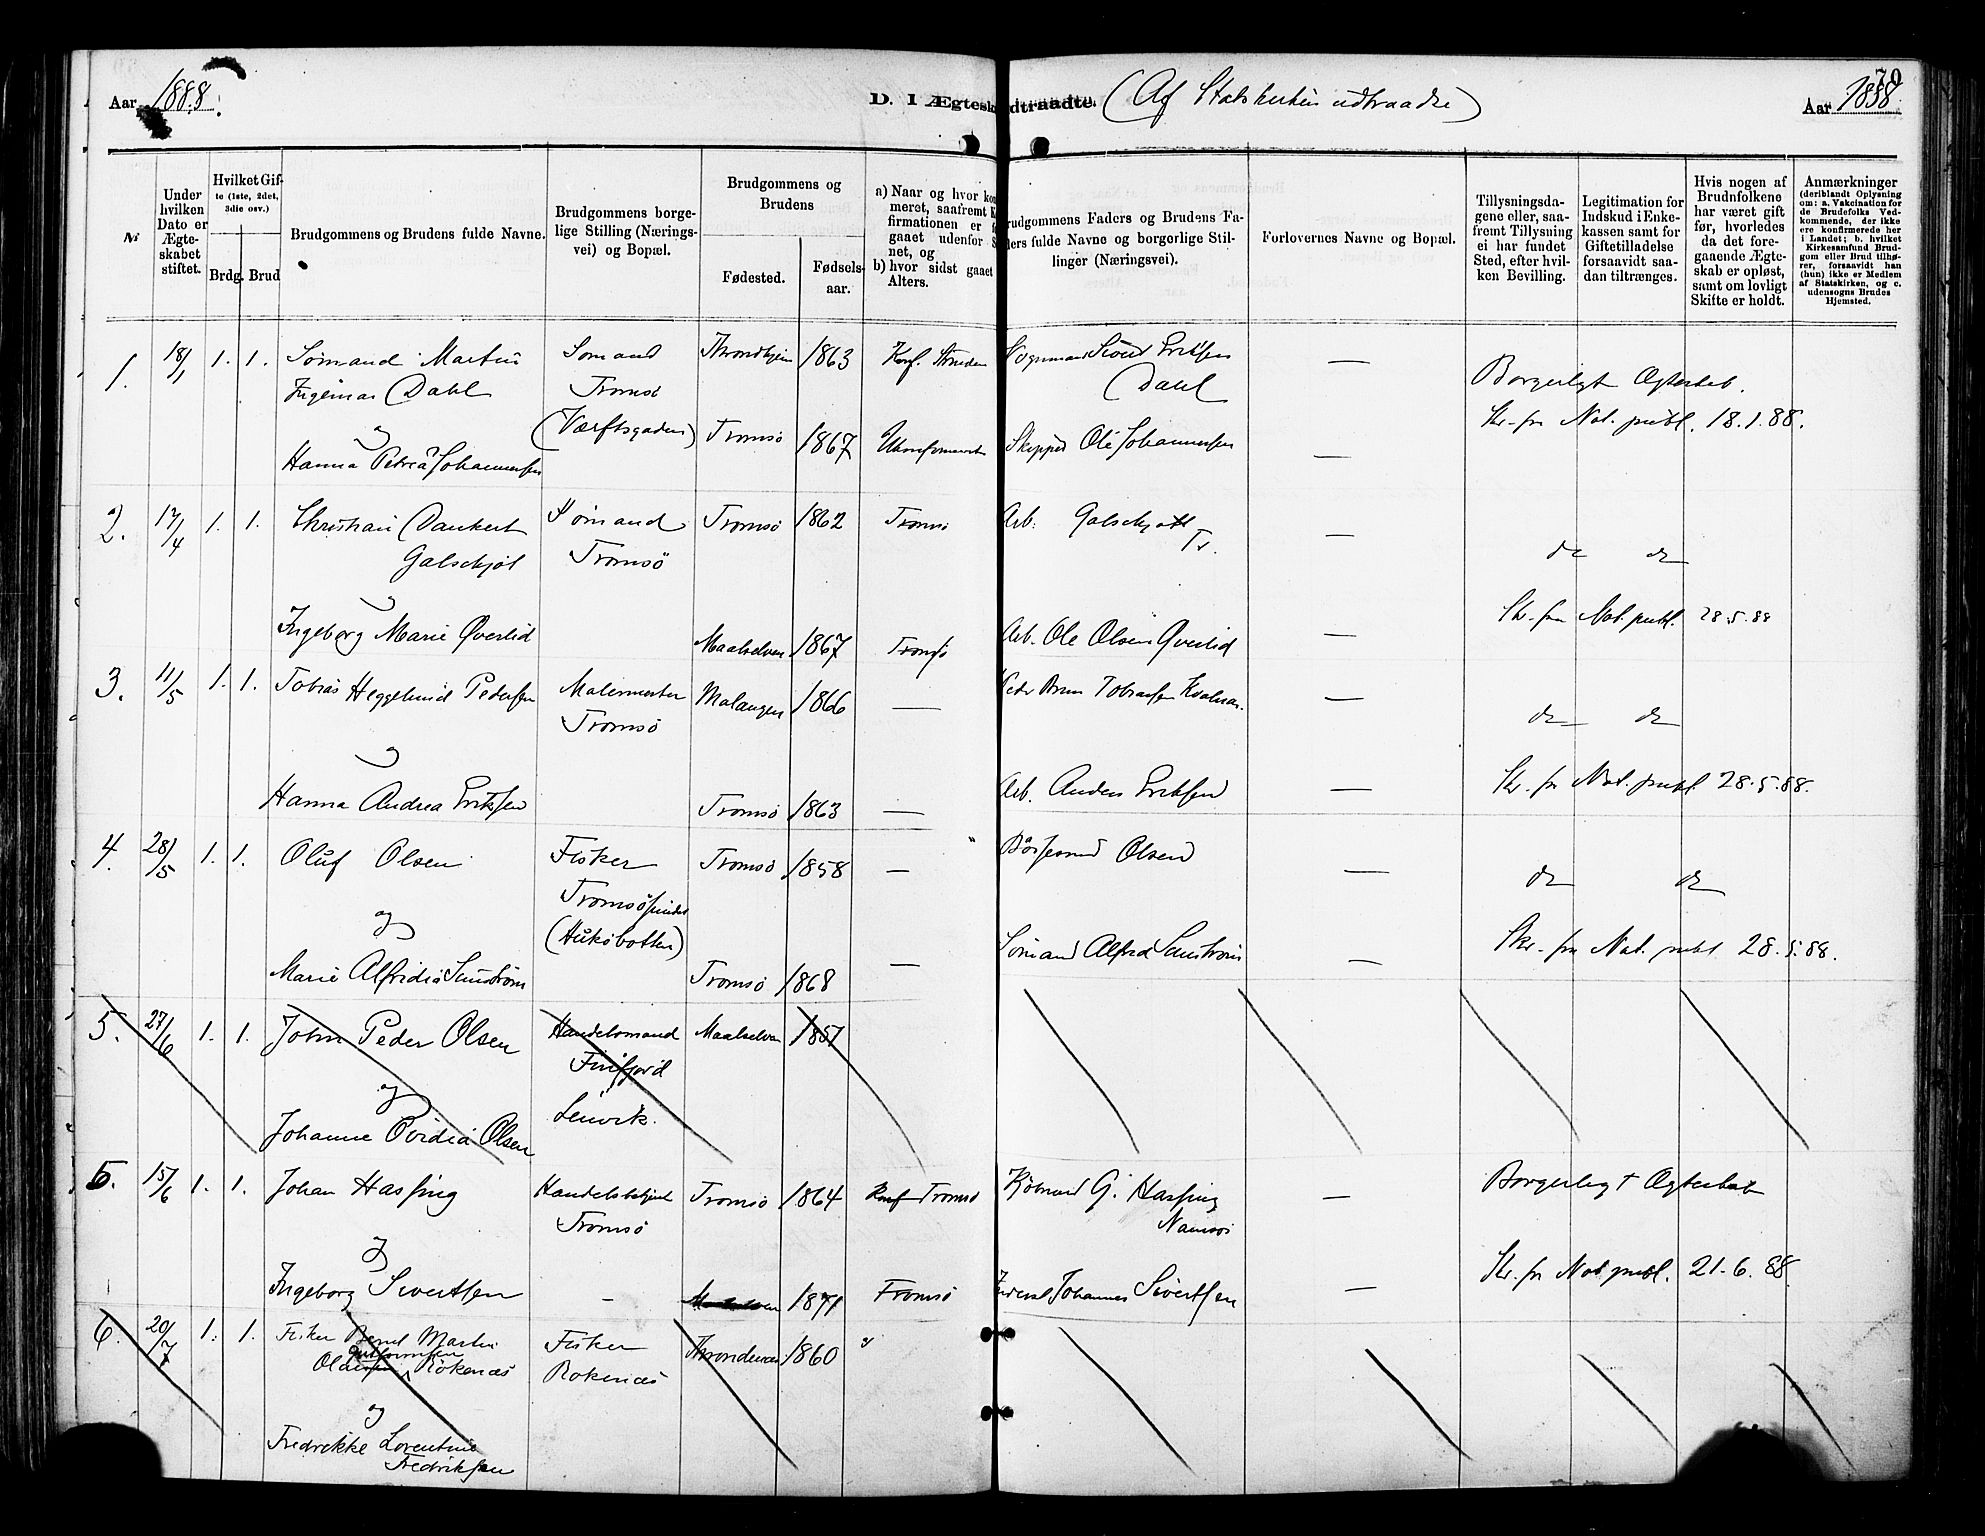 70
Aar 1888.
D. I Ægtesk
dtraadte. (Af Statskirken udtraadte)
Aar 1888
№
Under hvilken Dato er Ægteskabet stiftet.
Hvilket Gifte (1ste, 2det, 3die osv.)
Brdg. Brud
Brudgommens og Brudens fulde Navne.
Brudgommens borgelige Stilling (Næringsvei) og Bopæl.
Brudgommens og Brudens
Fødested.
Fødselsaar.
a) Naar og hvor kon
meret, saafremt K
firmationen er f
gaaet udenfor S
net, og
b) hvor sidst gaaet
Alters.
rudgommens Faders og Brudens Fa-
ders fulde Navne og borgerlige Stil-
linger (Næringsvei).
Forlovernes Navne og Bopæl.
Tillysningsda-
gene eller, saa-
fremt Tillysning
ei har fundet
Sted, efter hvil-
ken Bevilling.
Legitimation for
Indskud i Enke-
kassen samt for
Giftetilladelse
forsaavidt saa-
dan tiltrænges.
Hvis nogen af
Brudnfolkene
har været gift
før, hvorledes
da det fore-
gaaende Ægte-
skab er opløst,
samt om lovligt
Skifte er holdt.
Anmærkninger
(deriblandt Oplysning
om: a. Vakcination for
de Brudefolks Ved-
kommende, der ikke
ere konfirmerede her
i Landet; b. hvilket
Kirkesamfund Brud-
gom eller Brud tilhø-
rer, forsaavidt han
(hun) ikke er Medlem
af Statskirken, og c.
udensogns Brudes
Hjemsted.
1. 18/1 1. 1. Sømand Martin Sømand Throndhjem 1863 Konf. — Borgerligt Ægteskab.
Ingemar Dahl Tromsø Dahl
(Værftsgaden) Skr. fra Not. publ. 18.1.88.
og Tromsø 1867 Ukonfirmeret Skipper Ole Johannessen —
Hanna Petrea Johannessen
2. 17/4 1. 1. Christian Dankert Sømand Tromsø 1862 Tromsø Arb. Galschjøtt —
Galschjøt Tromsø Tr. do do
og Skr. fra Not. publ. 28.5.88
Ingeborg Marie Øverlid Maalselven 1867 Tromsø Arb. Ole Olsen Øverlid —
3. 11/5 1. 1. Tobias Heggelund Pedersen Malermester Malangen 1866 — Tobiassen —
Tromsø do do
og Skr. fra Not. publ. 28.5.88.
Hanna Andrea Eriksen Tromsø 1863 — Arb. Anders Eriksen —
4. 28/5 1. 1. Oluf Olsen Fisker Tromsø 1858 — Olsen —
Tromsøsundet do do
og (Hukøbotten) Skr. fra Not. publ. 28.5.88.
Marie Alfridia Tromsø 1868 — Sømand Alfred —
5. 27/6 1. 1. John Peder Olsen Handelsmand Maalselven 1851
Finfjord
og Lenvik.
Johanne Ovidia Olsen
5. 15/6 1. 1. Johan Hassing Handelsbetjent Tromsø 1864 Konf Tromsø Kjøbmand G. Hassing — Borgerligt Ægteskab
Tromsø Namsos
og Skr. fra Not. publ. 21.6.88.
Ingeborg Sivertsen — Maalselven 1871 Tromsø Johannes Sivertsen —
6. 20/7 1. 1. Fisker Bernt Martin Fisker Throndenæs 1860 "
Oldersen Rökenæs Rokenæs
og
Fredrikke Lorentine
Fredriksen